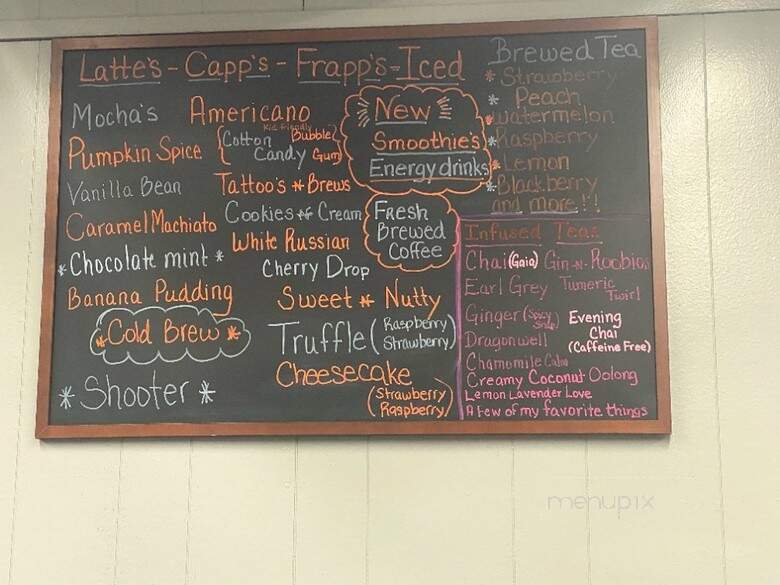 Latte's - Capp's - Frapp's - Iced
Mocha's
Pumpkin Spice
Vanilla Bean
Caramel Machiato
* Chocolate mint *
Banana Pudding
* Cold Brew *
* Shooter *
Americano
Kid friendly
Cotton Candy
Bubble Gum
Tattoo's * Brews
Cookies * Cream
White Russian
Cherry Drop
Sweet * Nutty
Truffle (Raspberry
Strawberry)
Cheesecake
(Strawberry
Raspberry)
New
Smoothie's
Energy drinks
Fresh
Brewed
Coffee
Brewed Tea
* Strawberry
* Peach
* Watermelon
* Raspberry
* Lemon
* Blackberry
and more!!
Infused Teas
Chai (Gaia) Gin-N-Roobios
Earl Grey Tumeric Twirl
Ginger (Spicy Snap)
Dragonwell
Evening
Chai
(Caffeine Free)
Chamomile Calm
Creamy Coconut Oolong
Lemon Lavender Love
A few of my favorite things
menupix